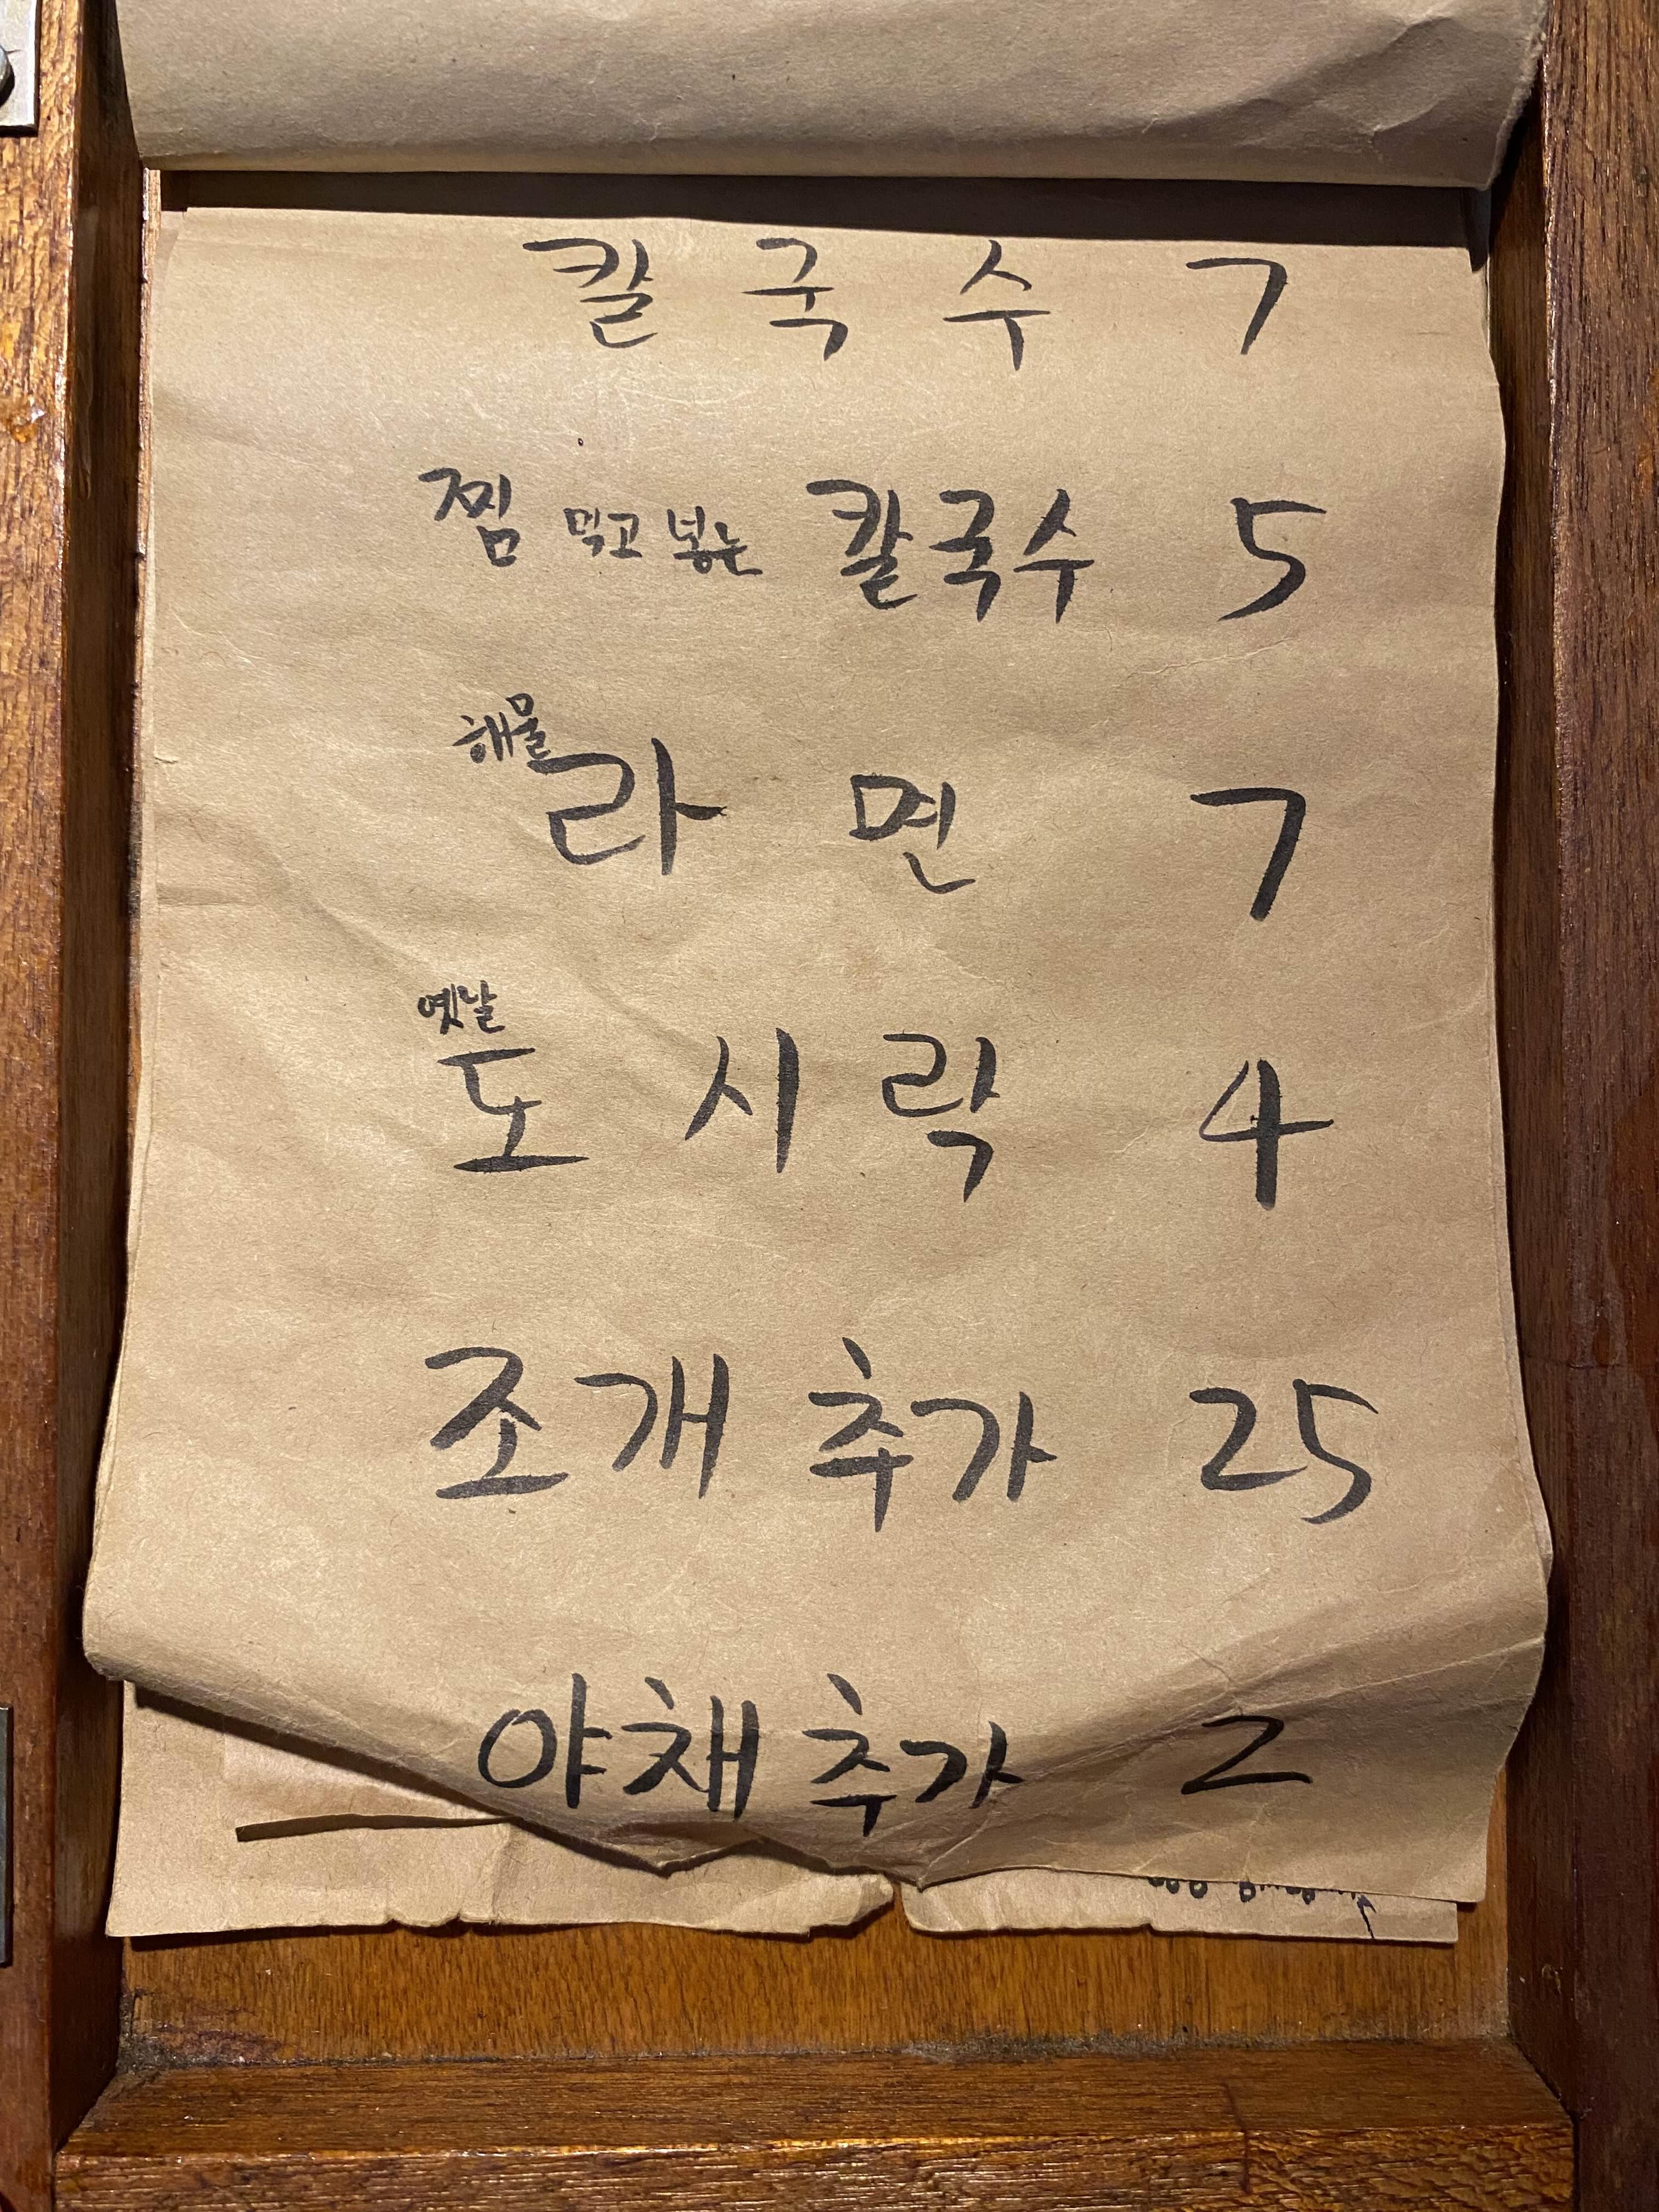 칼국수 7
찜 먹고 넣는 칼국수 5
해물
라면 7
옛날
도시락 4
조개 추가 25
야채 추가 2